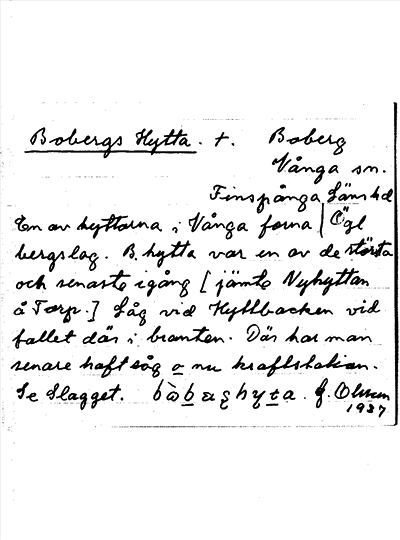 Bobergs Hytta. +. Boberg
Vånga sn.
Finspånga Läns hd
En av hyttorna i Vånga forna | Ögl
bergslag. B. hytta var en av de största
och senaste igång [jämte Nyhyttan
å Torp.] Låg vid Hyttbacken vid
fallet där i branten. Där har man
senare haft såg o nu kraftstation.
Se Slagget. G. Olsson
1937